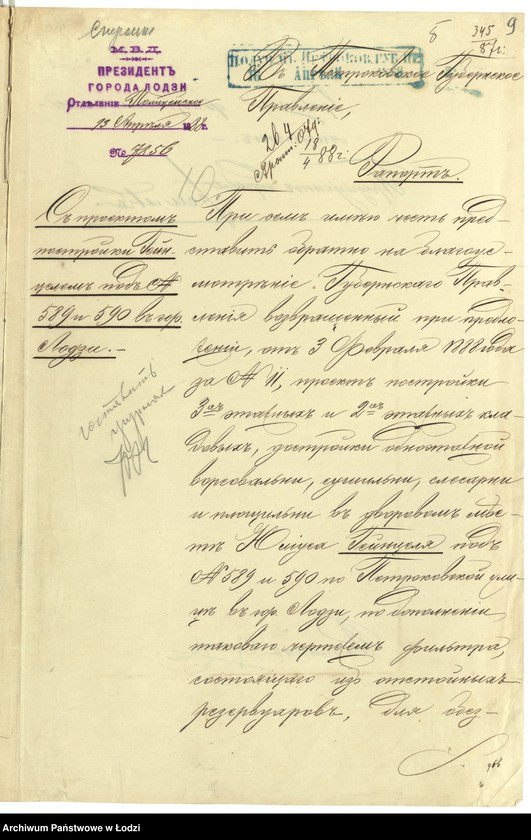 5
345
87 г.
9
М.В.Д.
ПРЕЗИДЕНТЪ
ГОРОДА ЛОДЗИ
Отдѣленіе Полицейское
13 Апрѣля 1888 г.
№ 7856
Въ Петроковское Губернское
Правленіе,
264
18/4 88 г.
Рапортъ.
Съ проектомъ
постройки Гейн-
целемъ подъ №
589 и 590 въ гор.
Лодзи.-
составить
журналъ
При семъ имѣю честь пред-
ставить обратно на благоус-
мотрѣніе Губернскаго Прав-
ленія возвращенный при предло-
женіи, отъ 3 Февраля 1888 года
за № 11, проектъ постройки
3хъ этажныхъ и 2хъ этажныхъ кла-
довыхъ, достройки одноэтажной
ворсовальни, сушильни, слесарни
и плющильни въ дворовомъ мѣс-
тѣ Юліуса Гейнцеля подъ
№ 589 и 590 по Петроковской ули-
цѣ въ гор. Лодзи, по дополненіи
таковаго чертежемъ фильтра,
состоящаго изъ отстойныхъ
резервуаровъ, для обез-
Archiwum Państwowe w Łodzi